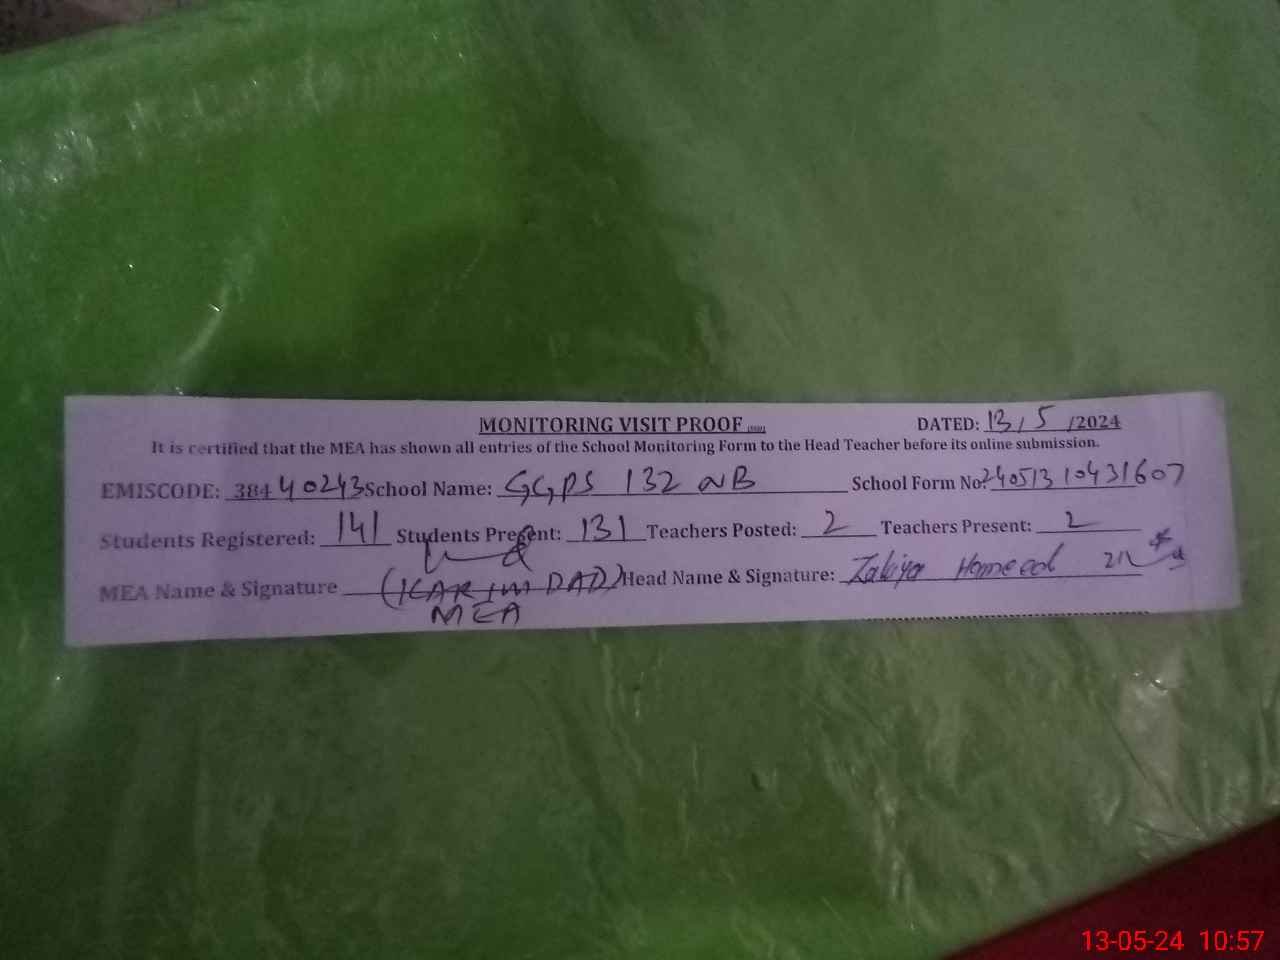 MONITORING VISIT PROOF DATED: 13/5/2024
It is certified that the MEA has shown all entries of the School Monitoring Form to the Head Teacher before its online submission.
EMISCODE: 38440243 School Name: GGPS 132 NB School Form No: 24051310431607
Students Registered: 141 Students Present: 131 Teachers Posted: 2 Teachers Present: 2
MEA Name & Signature (KARIM DAD) Head Name & Signature: Zakiya Hameed
MEA
13-05-24 10:57